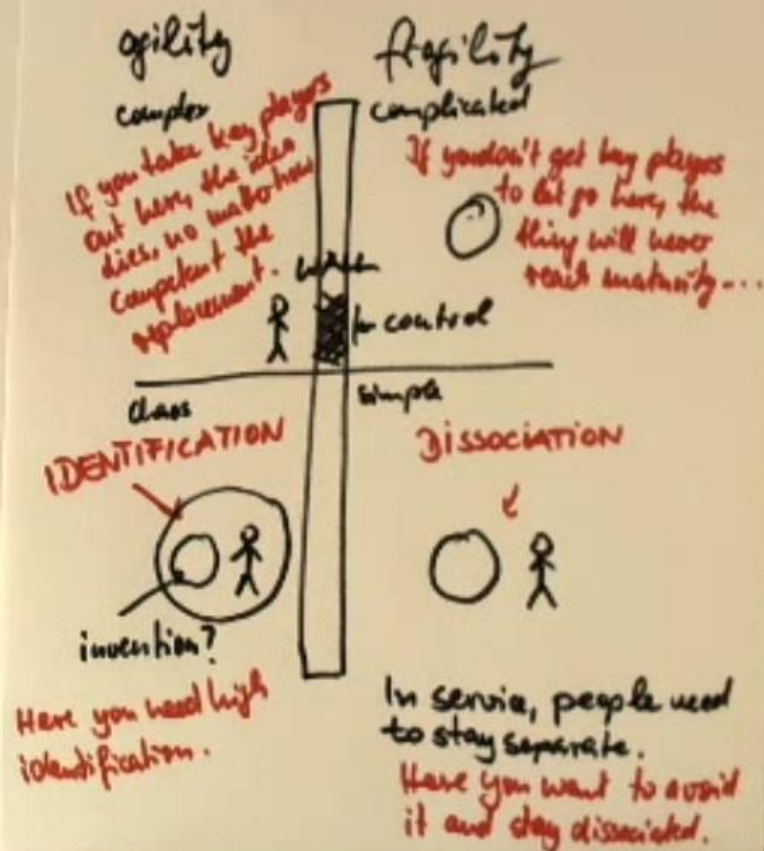 agility
fragility
complex
complicated
If you take key players
out here, the idea
dies, no matter how
competent the
replacement.
If you don't get key players
to let go here, the
thing will never
reach maturity...
control
chaos
simple
IDENTIFICATION
DISSOCIATION
invention?
Here you need high
identification.
In service, people need
to stay separate.
Here you want to avoid
it and stay dissociated.